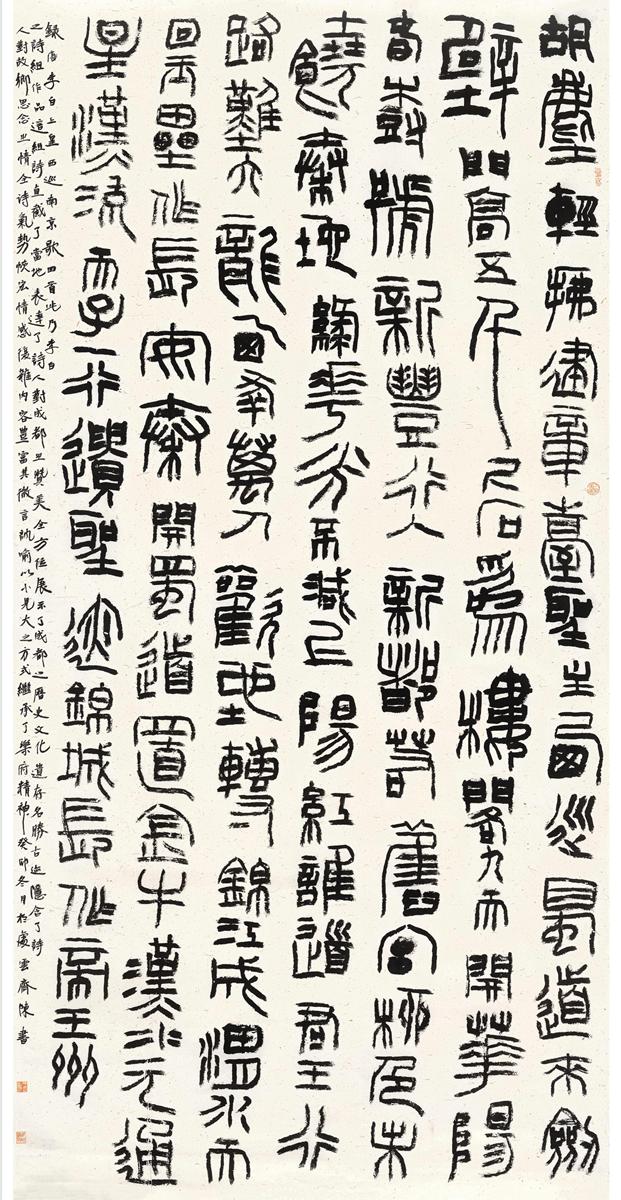 胡塵輕拂建章臺聖主西巡蜀道來劍
壁門高五千尺石為樓閣九天開華陽
春樹號新豐行入新都若舊宮柳色未
饒秦地綠華光不減上陽紅誰道君王行
路難六龍西幸萬人歡地轉錦江成渭水天
回玉壘作長安秦開蜀道置金牛漢水元通
星漢流天子一行遺聖迹錦城長作帝王州
錄唐李白上皇西巡南京歌四首此乃李白
之詩組作品這組詩直截了當地表達了詩人對成都之贊美全方位展示了成都之歷史文化遺存名勝古迹隱含了詩
人對故鄉思念之情全詩氣勢恢宏情感復雜内容豐富其微言諷喻以小見大之方式繼承了樂府精神癸卯冬月於雲齋陳書